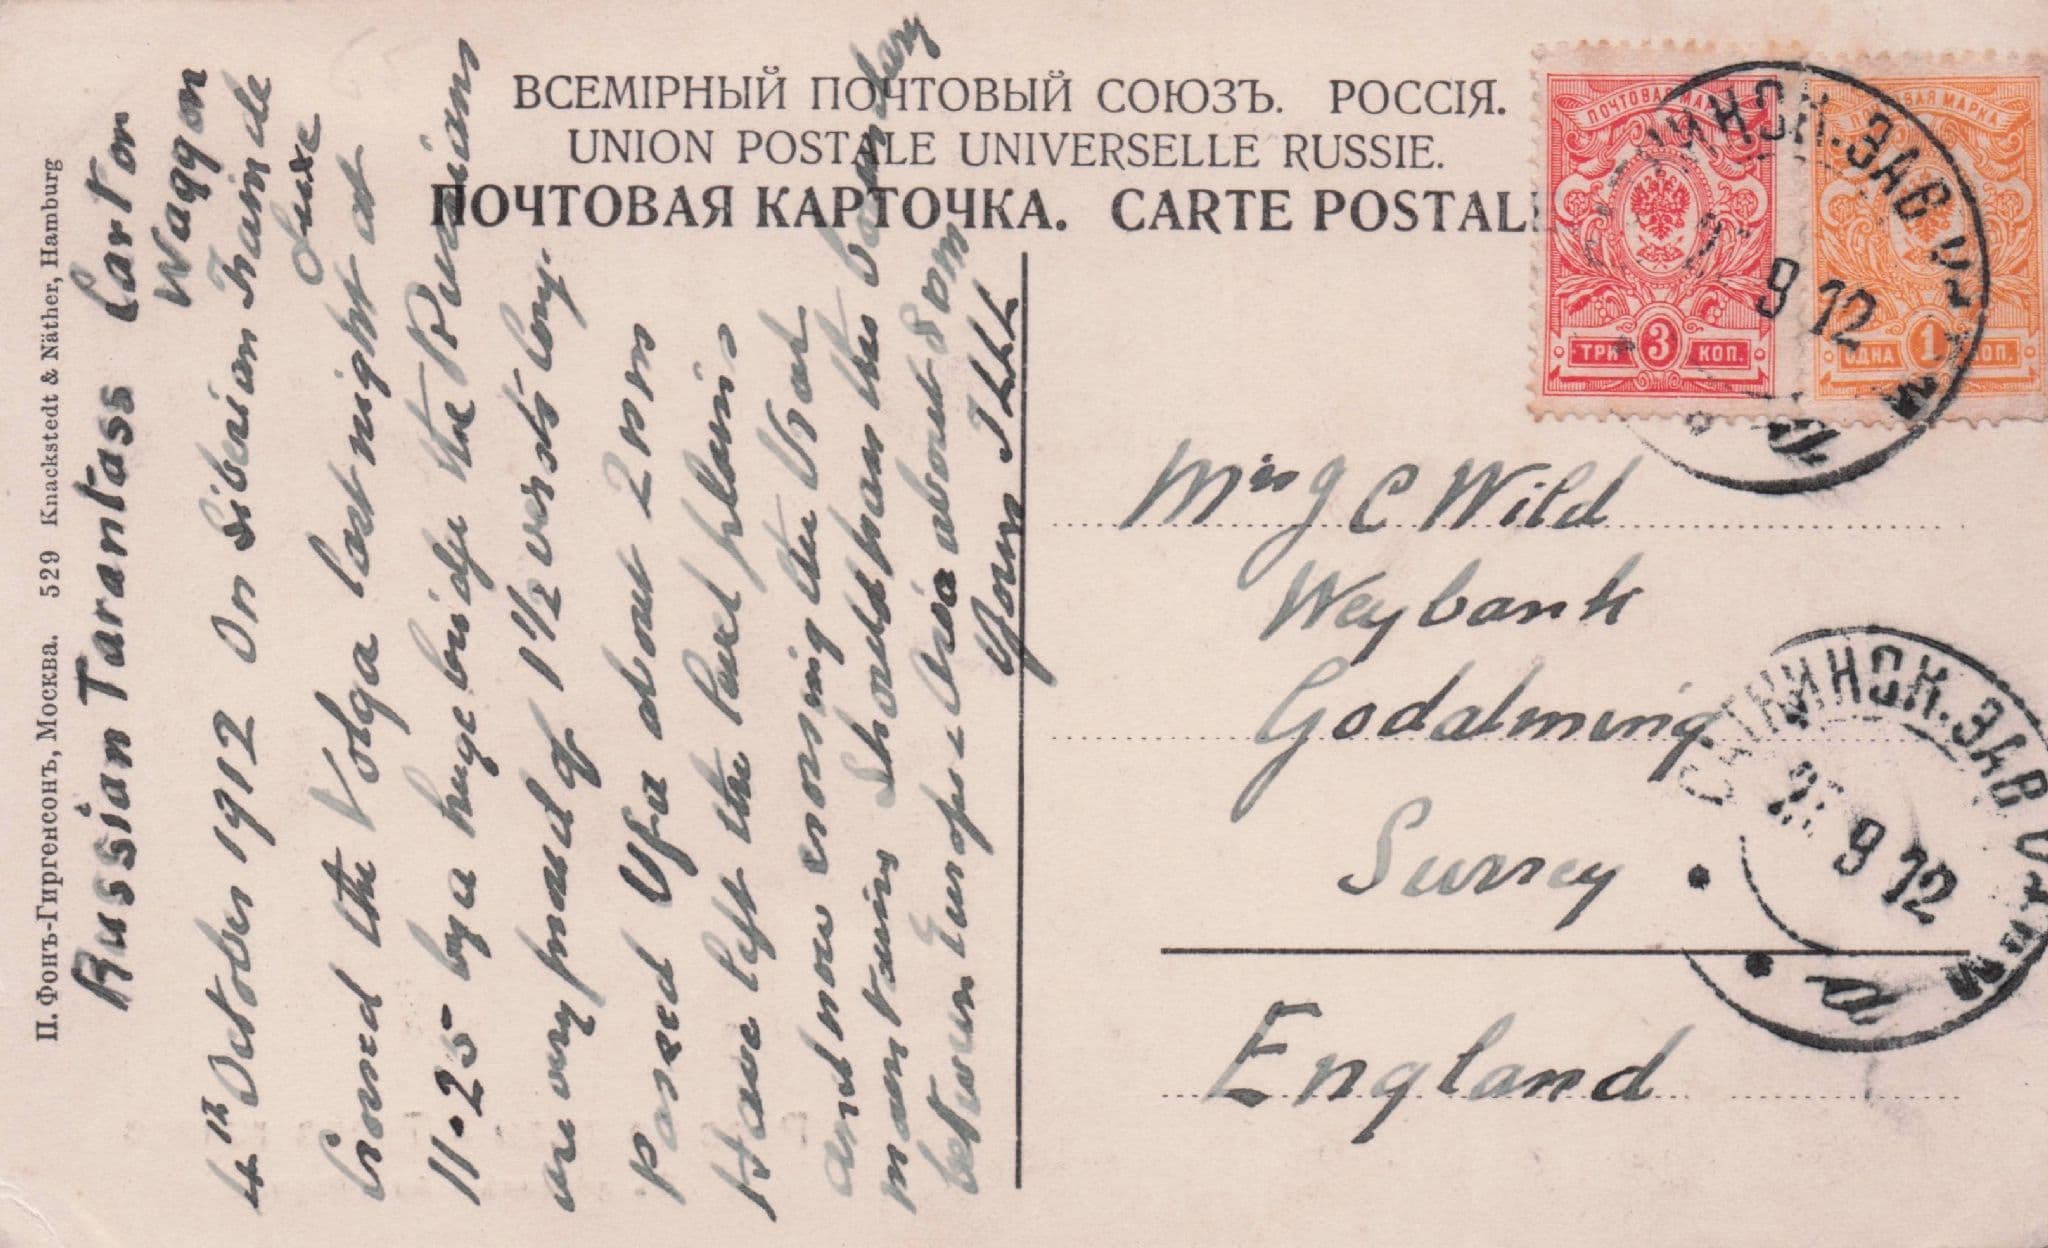 ВСЕМІРНЫЙ ПОЧТОВЫЙ СОЮЗЪ. РОССІЯ.
UNION POSTALE UNIVERSELLE RUSSIE.
ПОЧТОВАЯ КАРТОЧКА. CARTE POSTALE
П. Фонъ-Гиргенсонъ, Москва. 529 Knackstedt & Näther, Hamburg
Russian Tarantass Cart or
Waggon
4th October 1912 On Siberian Train de
Luxe
Crossed the Volga last night at
11-25 by a huge bridge the Russians
are very proud of 1½ versts long.
Passed Ufa about 2 pm
Have left the flat plains
and now crossing the Ural
mountains Should pass the boundary
between Europe & Asia about 8 pm
Yours
ПОЧТОВАЯ МАРКА
ТРИ 3 КОП.
ОДНА 1 КОП.
САТКИНСК. ЗАВ. УФИМ
9 12
а
Mrs J C Wild
Weybank
Godalming
Surrey
England
САТКИНСК. ЗАВ. УФИМ
9 12
а